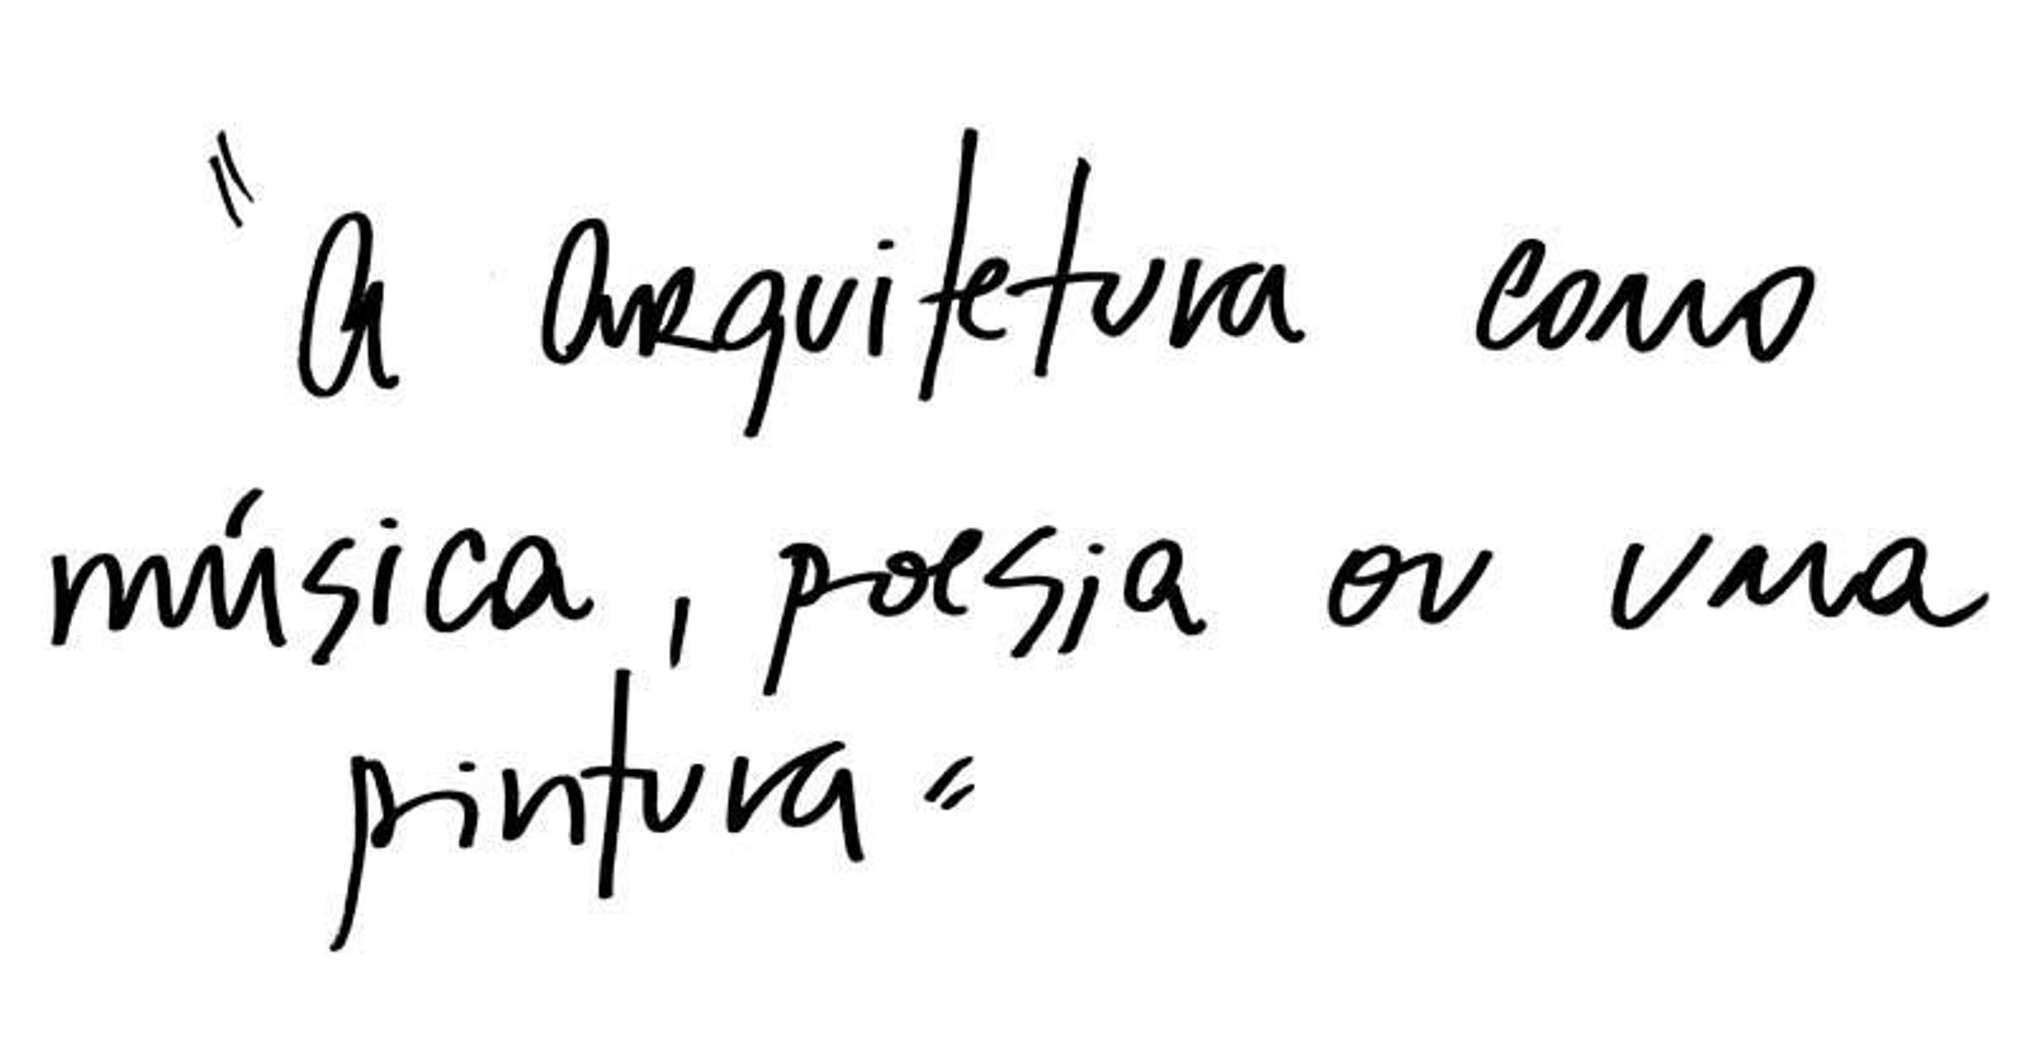 "A arquitetura como
música, poesia ou uma
pintura"